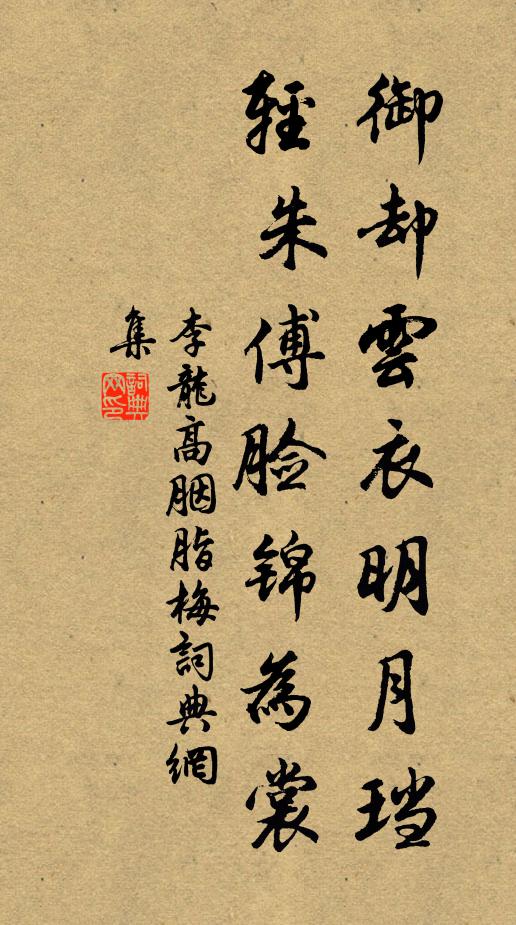 御却雲衣明月珰
輕朱傅脸錦為裳
李龍高胭脂梅詞典網
集
詞典
网印